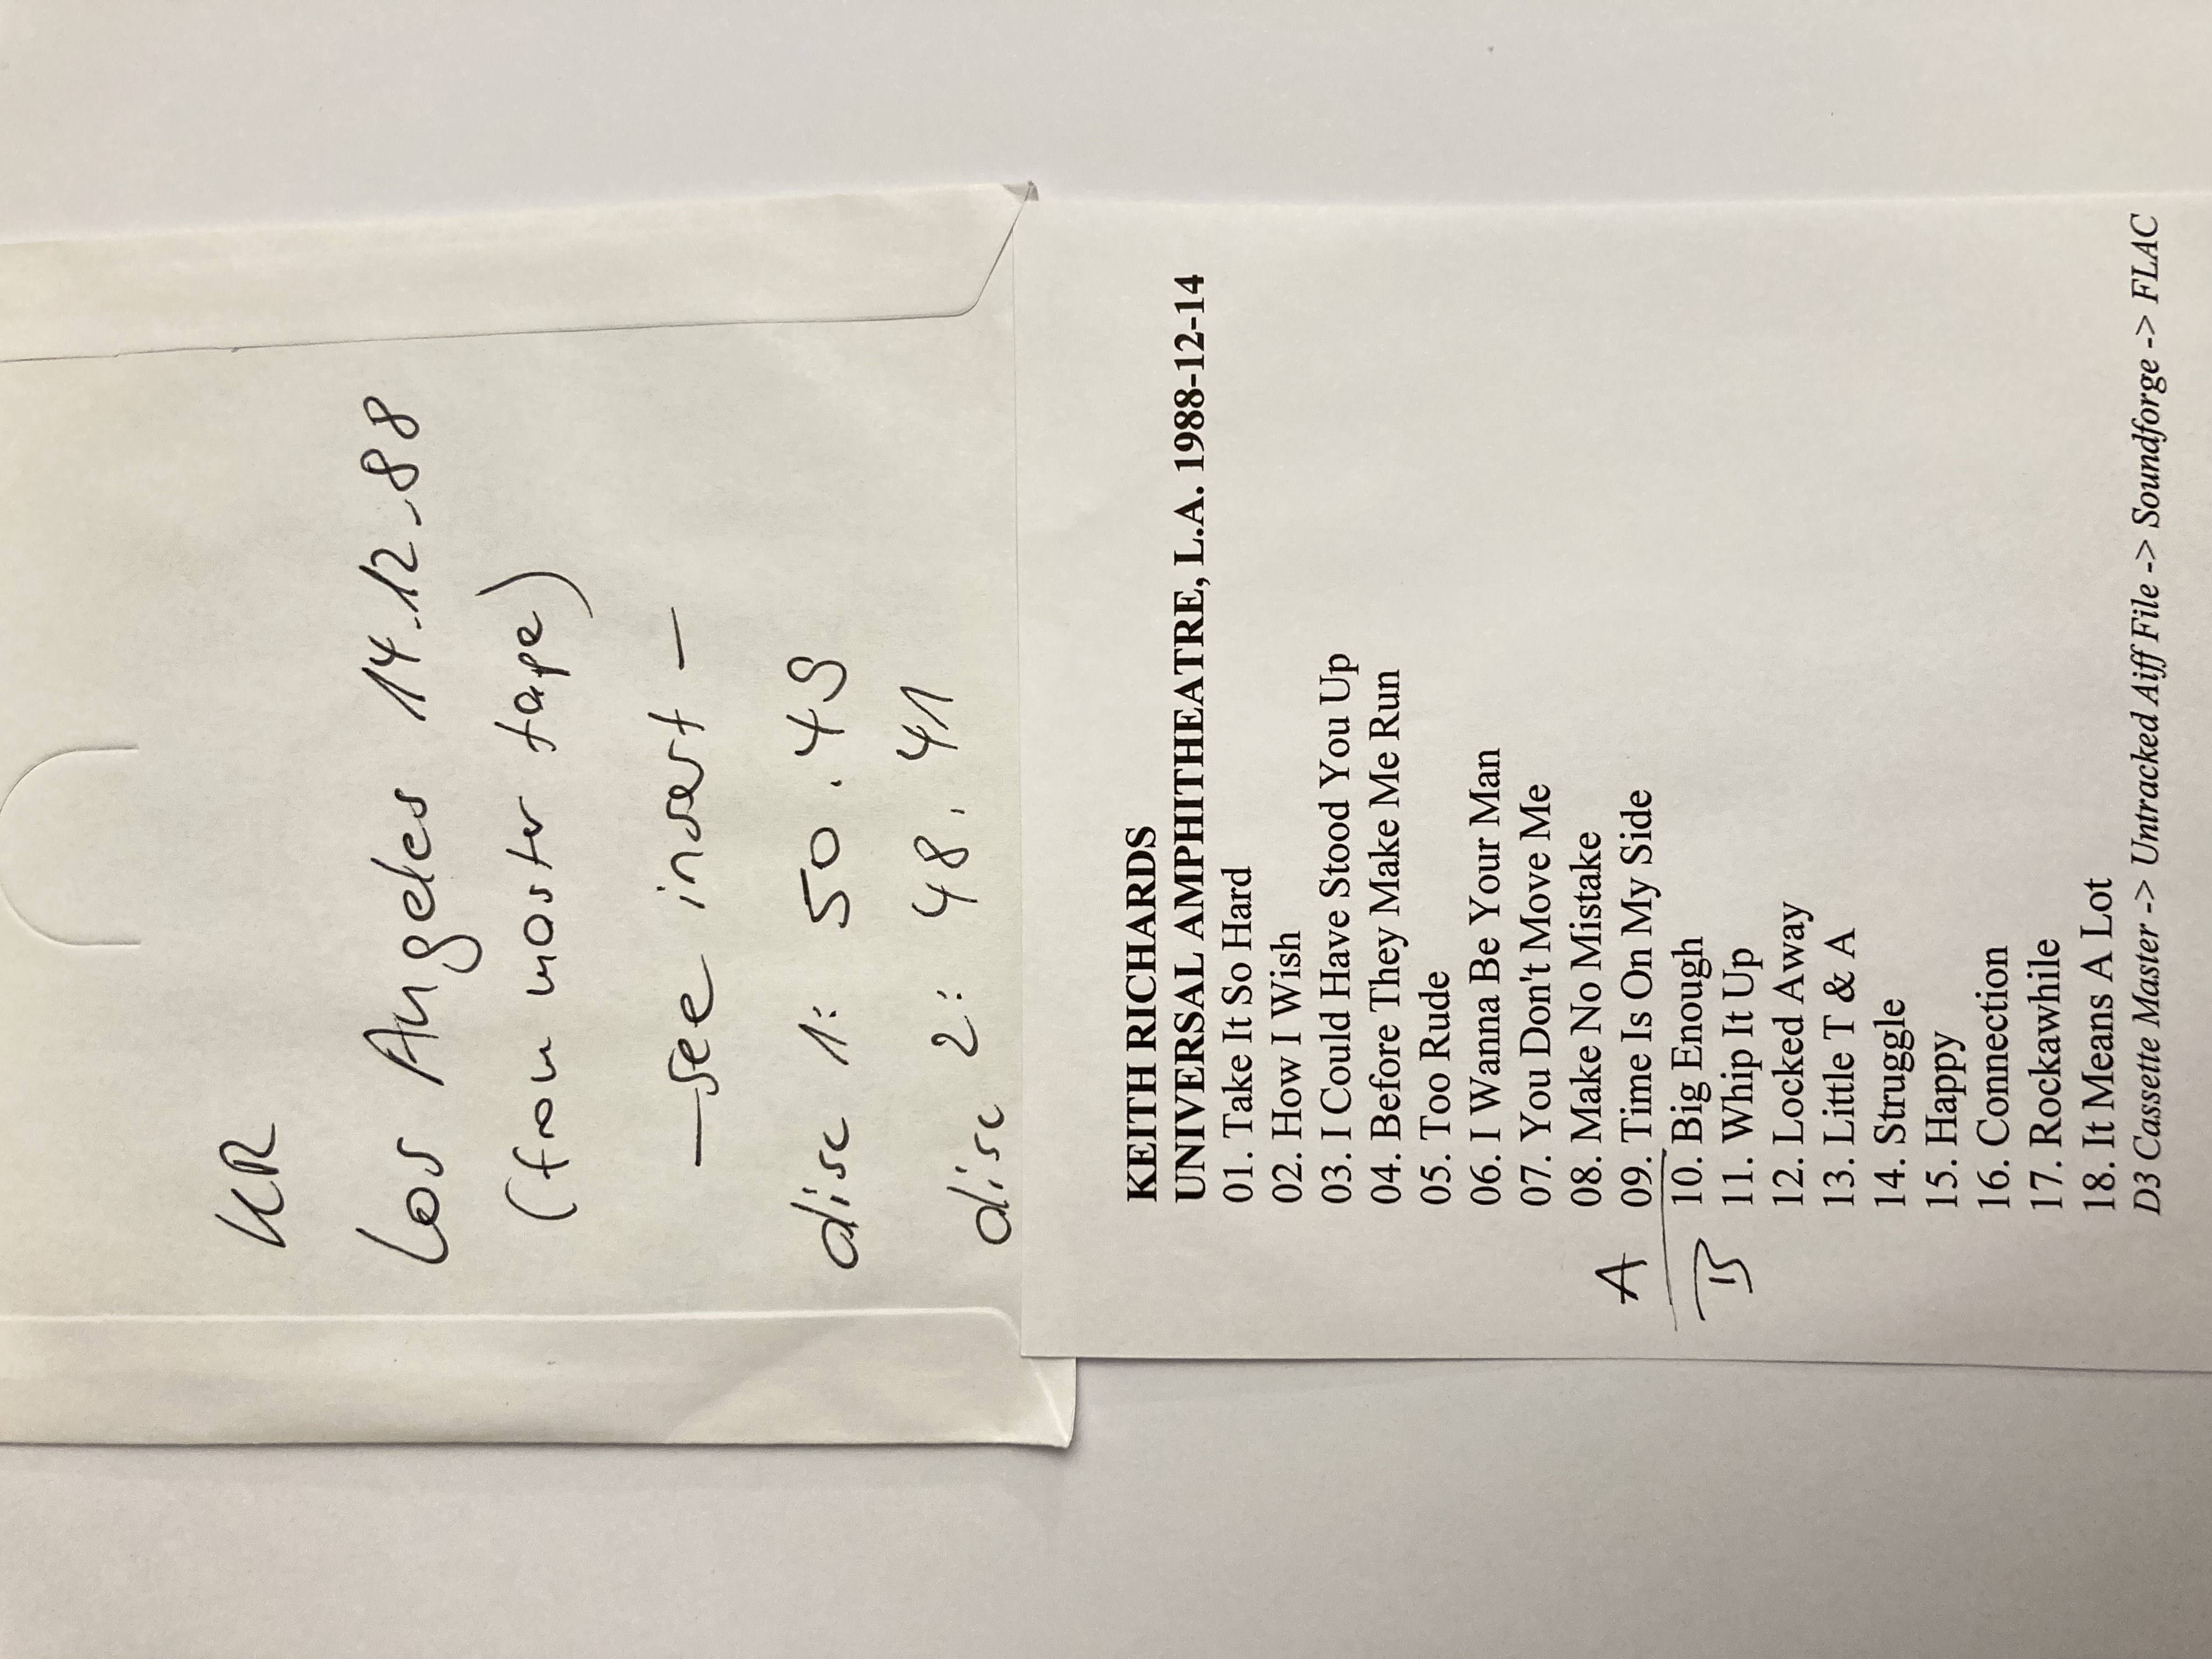 KR
Los Angeles 14.12.88
(from master tape)
– see insert –
disc 1: 50.49
disc 2: 48.41
KEITH RICHARDS
UNIVERSAL AMPHITHEATRE, L.A. 1988-12-14
01. Take It So Hard
02. How I Wish
03. I Could Have Stood You Up
04. Before They Make Me Run
05. Too Rude
06. I Wanna Be Your Man
07. You Don't Move Me
08. Make No Mistake
A 09. Time Is On My Side
B 10. Big Enough
11. Whip It Up
12. Locked Away
13. Little T & A
14. Struggle
15. Happy
16. Connection
17. Rockawhile
18. It Means A Lot
D3 Cassette Master -> Untracked Aiff File -> Soundforge -> FLAC